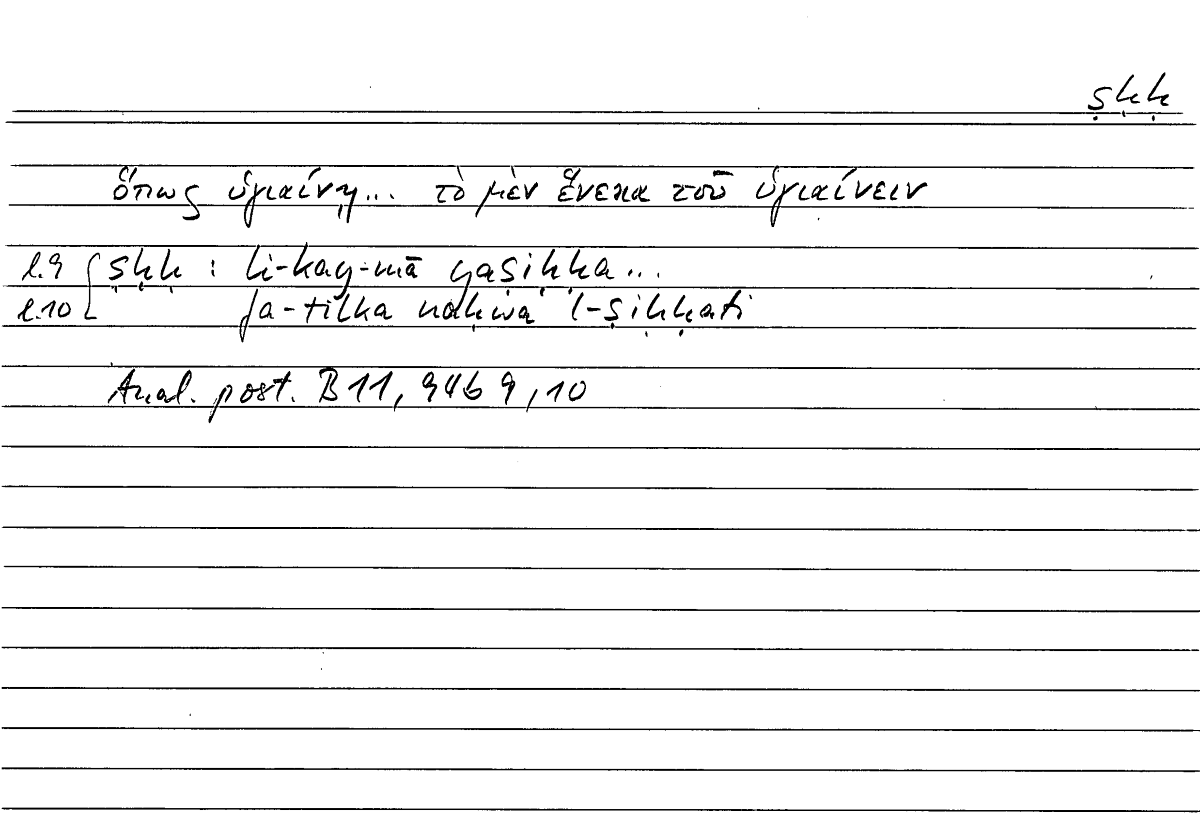 ṣḥḥ
ὅπως ὑγιαίνῃ... τὸ μὲν ἕνεκα τοῦ ὑγιαίνειν
l.9 ṣḥḥ : li-kay-mā yaṣiḥḥa...
l.10 fa-tilka naḥwa l-ṣiḥḥati
Anal. post. B 11, 94b 9, 10